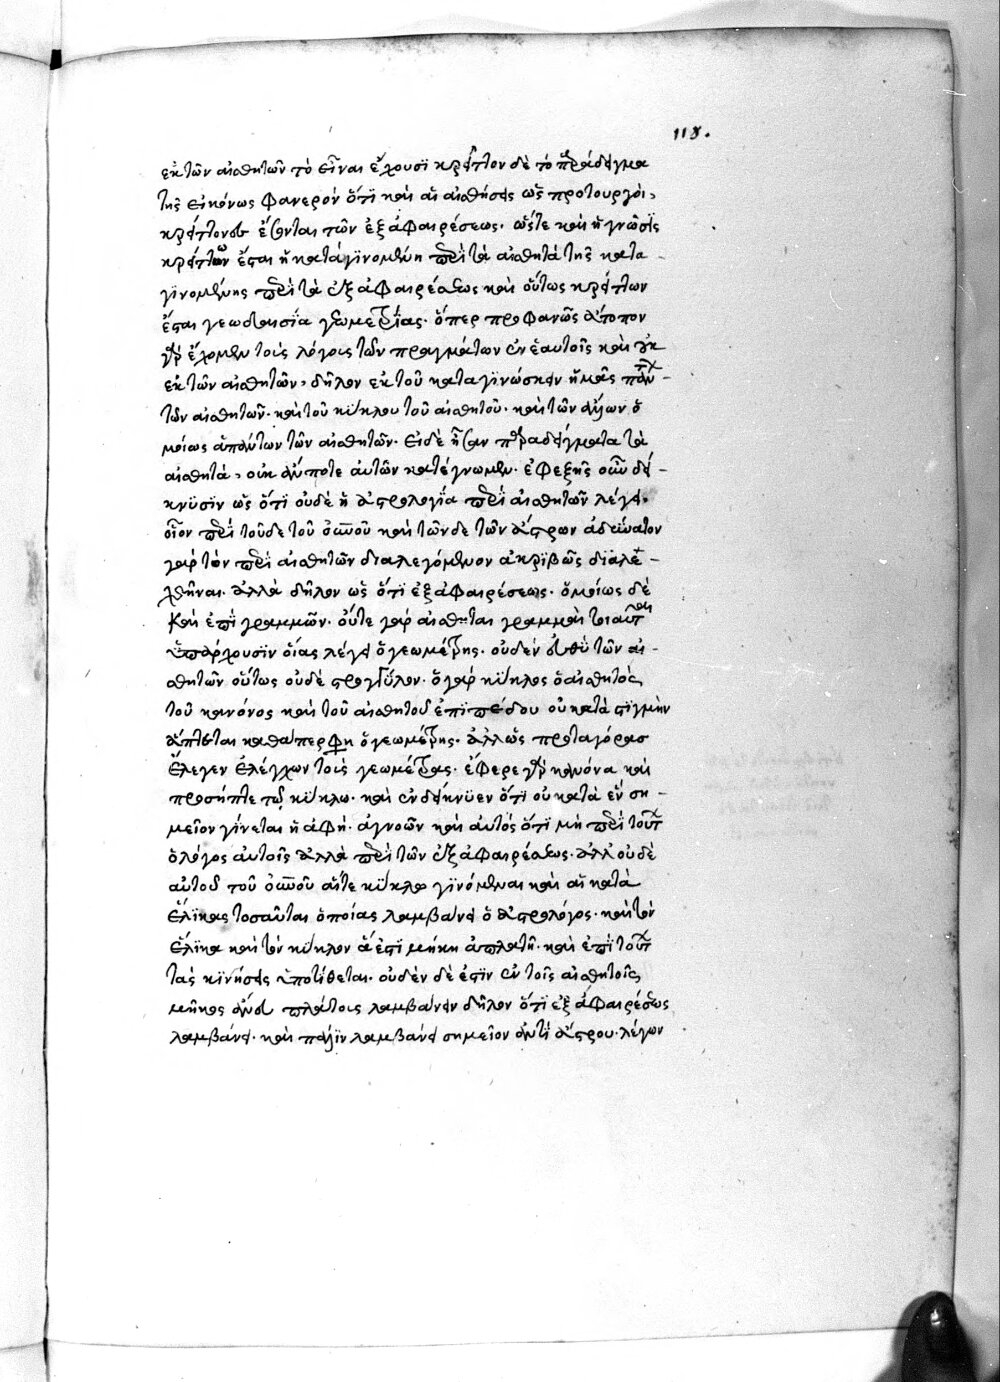 118.
ἐκ τῶν αἰσθητῶν τὸ εἶναι ἔχουσϊ κρεῖττον δὲ τὸ παράδειγμα
τῆς εἰκόνως φανερὸν ὅτϊ καὶ αἱ αἰσθήσεις ὡς πρωτουργοὶ,
κρείττονες ἔσονται τῶν ἐξ ἀφαιρέσεως. ὥστε καὶ ἡ γνῶσϊς
κρείττων ἔσται ἡ καταγϊνομένη περὶ τὰ αἰσθητὰ τῆς κατα-
γϊνομένης περὶ τὰ ἐξ ἀφαιρέσεως καὶ οὕτως κρείττων
ἔσται γεωδαισΐα γεωμετρΐας. ὅπερ προφανῶς ἄτοπον
γὰρ ἔχομεν τοὺς λόγοις τῶν πραγμάτων ἐν ἑαυτοῖς καὶ οὐκ
ἐκ τῶν αἰσθητῶν, δῆλον ἐκ τοῦ καταγϊνώσκειν ἡμᾶς παν-
των αἰσθητῶν. καὶ τοῦ κύκλου τοῦ αἰσθητοῦ. καὶ τῶν ἄλλων ὁ
μοίως ἁπάντων τῶν αἰσθητῶν. εἰ δὲ ἦσαν παραδείγματα τὰ
αἰσθητὰ, οὐκ ἄν ποτε αὐτῶν κατέγνωμεν. ἐφεξῆς οὖν δεί-
κνϋσϊν ὡς ὅτϊ οὐδὲ ἡ ἀστρολογΐα περὶ αἰσθητῶν λέγει.
οἷον περὶ τοῦδε τοῦ οὐρανοῦ καὶ τῶνδε τῶν ἄστρων ἀδεύνατον
γὰρ τὸν περὶ αἰσθητῶν διαλεγόμενον ἀκρϊβῶς διαλε-
χθῆναι. ἀλλὰ δῆλον ὡς ὅτϊ ἐξ ἀφαιρέσεως. ὁμοίως δὲ
καὶ ἐπῒ γραμμῶν. οὔτε γὰρ αἰσθηται γραμμαὶ τοιαῦται
ὑπάρχουσϊν οἵας λέγει ὁ γεωμέτρης. οὐδὲν εὐθὺ τῶν αἰ-
σθητῶν οὕτως οὐδὲ στρογγΰλον. ὁ γὰρ κύκλος ὁ αἰσθητὸς
τοῦ κανόνος καὶ τοῦ αἰσθητοῦ ἐπϊπέδου οὐ κατὰ στϊγμὴν
ἅπτεται καθάπερ φη ὁ γεωμέτρης. ἀλλ ὡς πρωταγόρας
ἔλεγεν ἐλέγχων τοὺς γεωμέτρας. ἔφερε γὰρ κανόνα καὶ
προσήπτε τῷ κύκλω. καὶ ἐνδείκνυεν ὅτϊ οὐ κατὰ ἓν ση-
μεῖον γίνεται ἡ ἁφή. ἀγνοῶν καὶ αὐτὸς ὅτϊ μὴ περὶ τούτων
ὁ λόγος αὐτοῖς ἀλλὰ περὶ τῶν ἐξ ἀφαιρέσεως. ἀλλ οὐδὲ
αὐτοῦ τοῦ οὐρανοῦ αἵτε κύκλῳ γϊνόμεναι καὶ αἱ κατὰ
ἕλϊκας τοσαῦται ὁποίας λαμβάνει ὁ ἀστρολόγος. καὶ τὸν
ἕλϊκα καὶ τὸν κύκλον ἅ ἐστϊ μήκη ἀπλατῆ. καὶ ἐπὶ τούτων
τὰς κϊνήσεις ὑποτίθεται. οὐδὲν δέ ἐστϊν ἐν τοῖς αἰσθητοῖς
μῆκος ἄνευ πλάτους λαμβάνειν δῆλον ὅτϊ ἐξ ἀφαιρέσεως
λαμβάνει. καὶ πάλϊν λαμβάνει σημεῖον ἀντὶ ἄστρου. λέγων